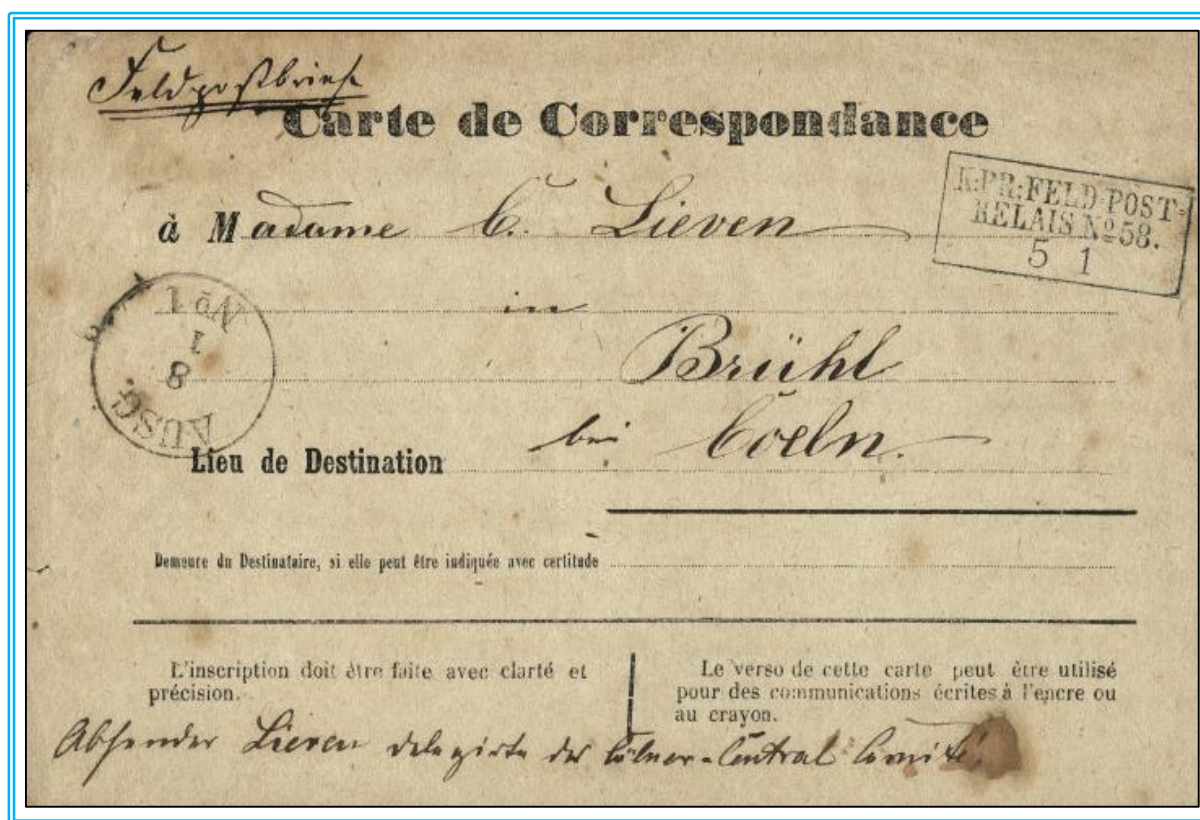 Feldpostbrief
Carte de Correspondance
à Madame C. Lieven
K:PR:FELD-POST-
RELAIS No 58.
5 1
in
No 1
1
8
AUSG.
Brühl
Lieu de Destination bei Coeln.
Demeure du Destinataire, si elle peut être indiquée avec certitude
L'inscription doit être faite avec clarté et
précision.
Le verso de cette carte peut être utilisé
pour des communications écrites à l'encre ou
au crayon.
Absender Lieven delegirte des Cölner-Central Comité